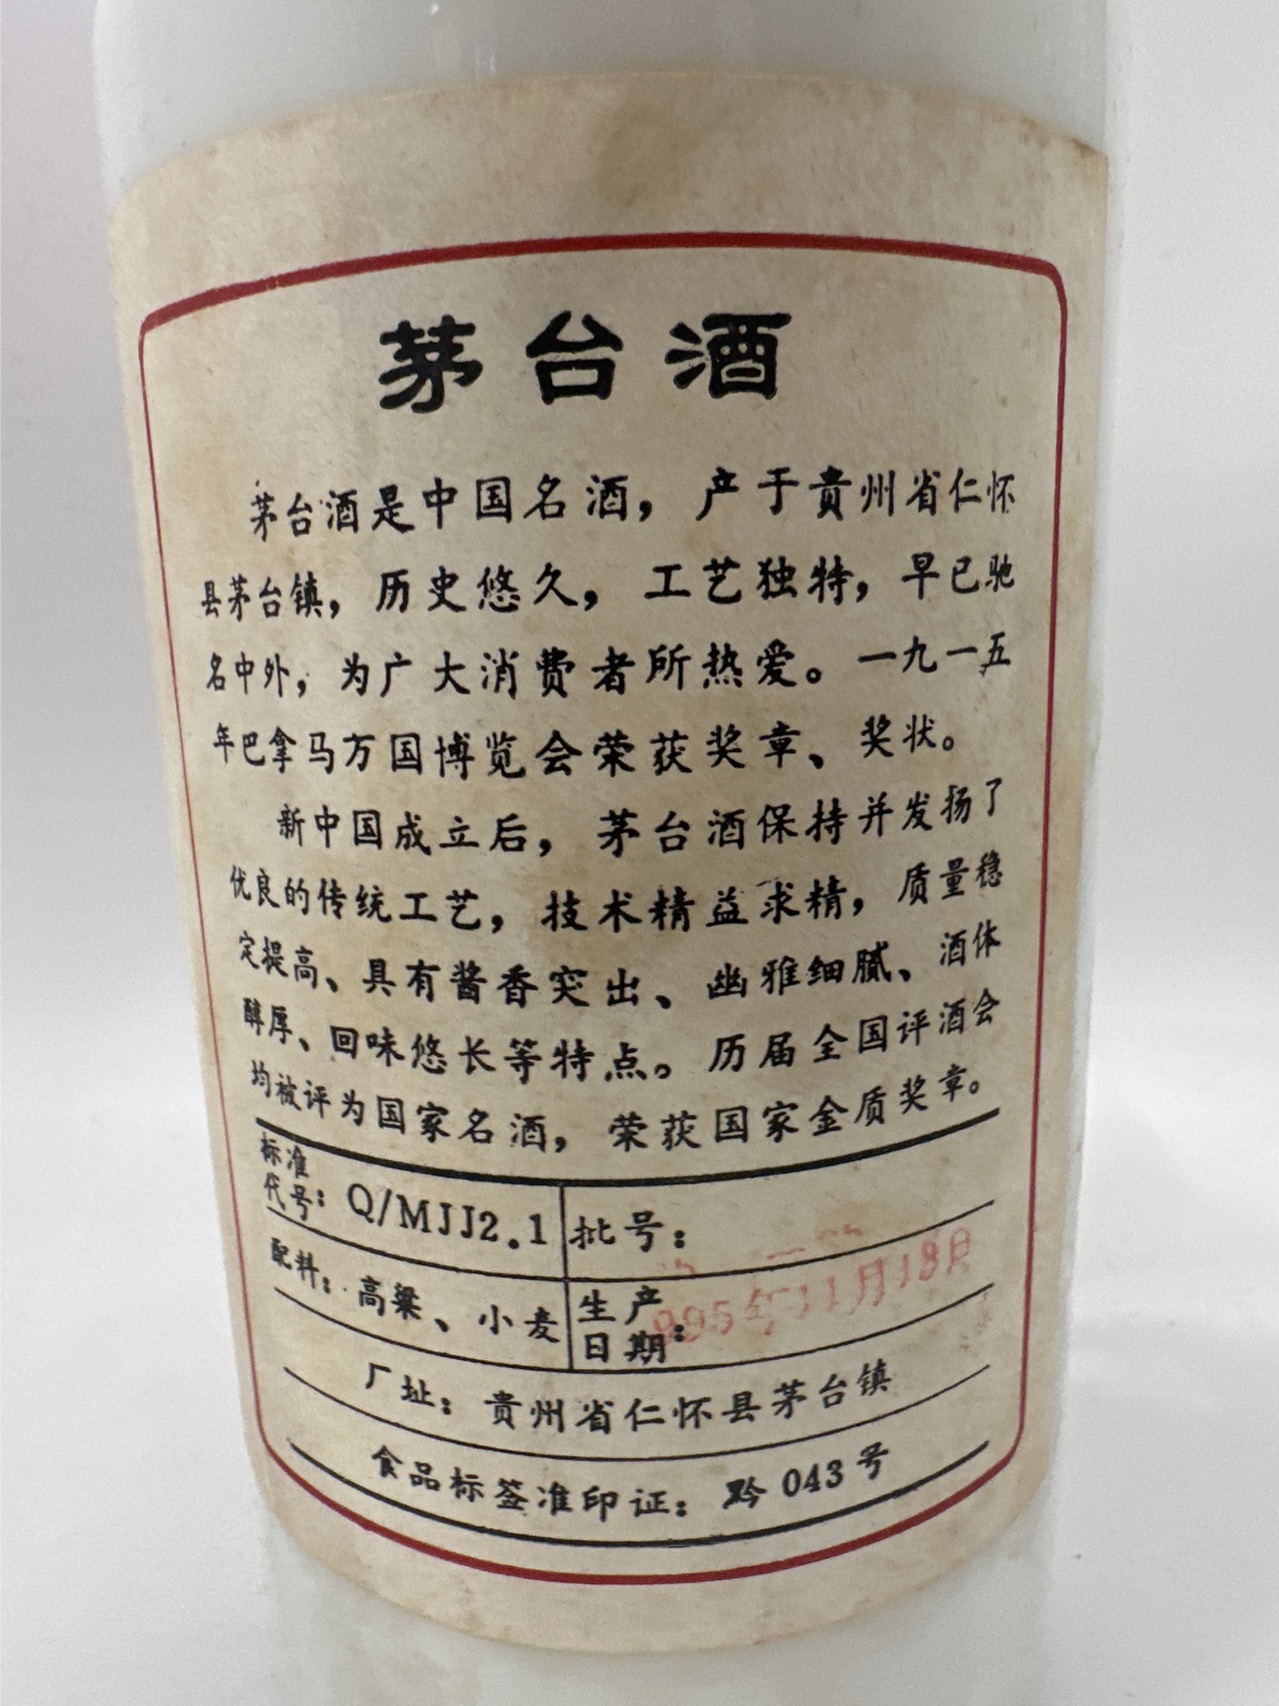 茅台酒
茅台酒是中国名酒，产于贵州省仁怀
县茅台镇，历史悠久，工艺独特，早已驰
名中外，为广大消费者所热爱。一九一五
年巴拿马万国博览会荣获奖章、奖状。
新中国成立后，茅台酒保持并发扬了
优良的传统工艺，技术精益求精，质量稳
定提高、具有酱香突出、幽雅细腻、酒体
醇厚、回味悠长等特点。历届全国评酒会
均被评为国家名酒，荣获国家金质奖章。
标准代号：Q/MJJ2.1 批号：
配料：高粱、小麦 生产日期：995年11月18日
厂址：贵州省仁怀县茅台镇
食品标签准印证：黔043号